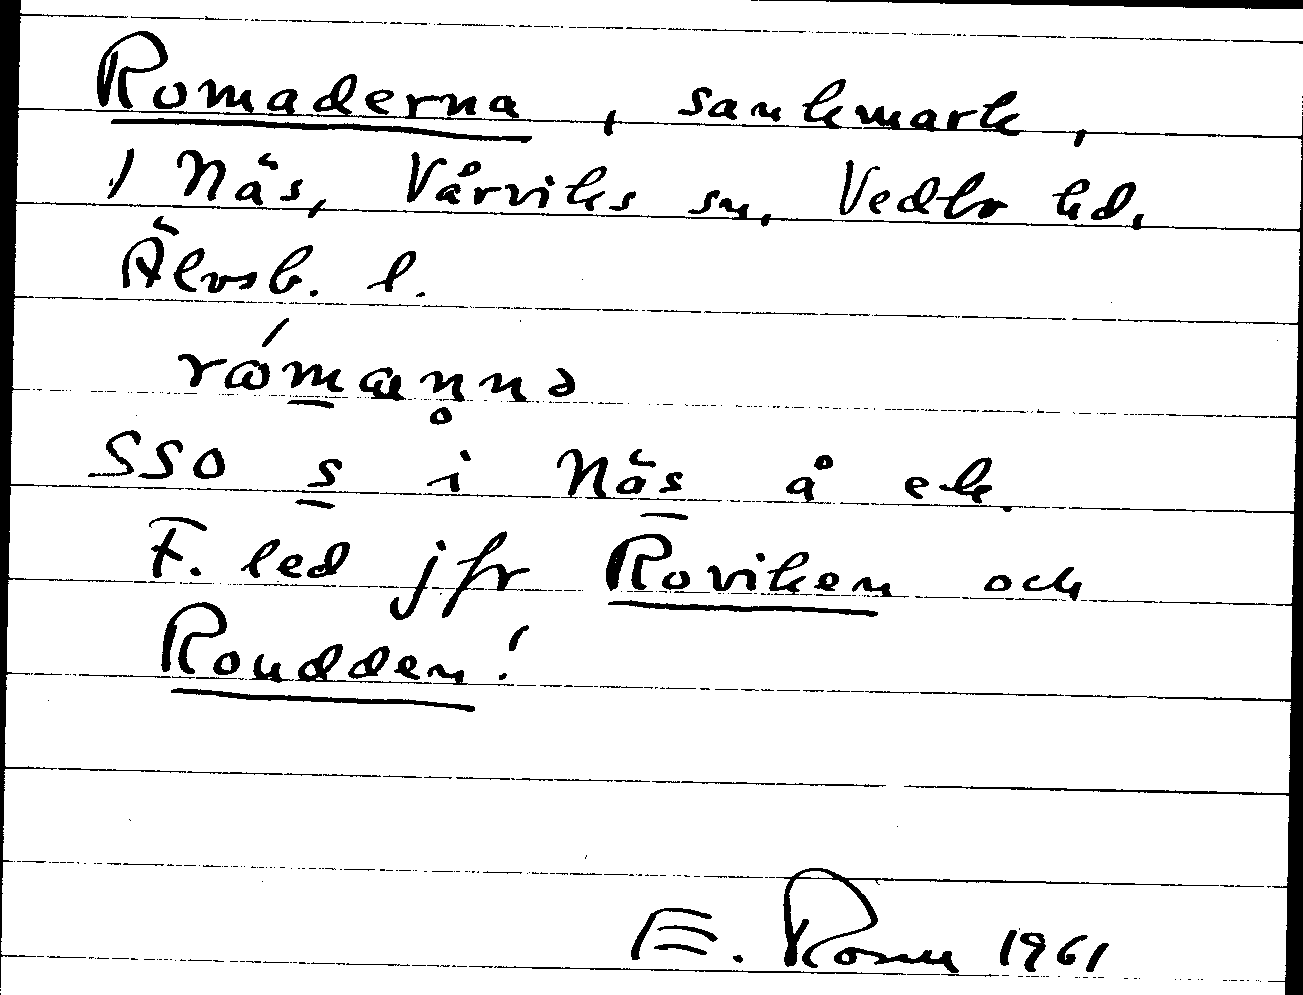 Romaderna, sankmark,
1 Näs, Vårviks sn, Vedbo hd,
Älvsb. l.
SSO s i Näs å ek.
F. led jfr Roviken och
Roudden!
E. Rosm 1961